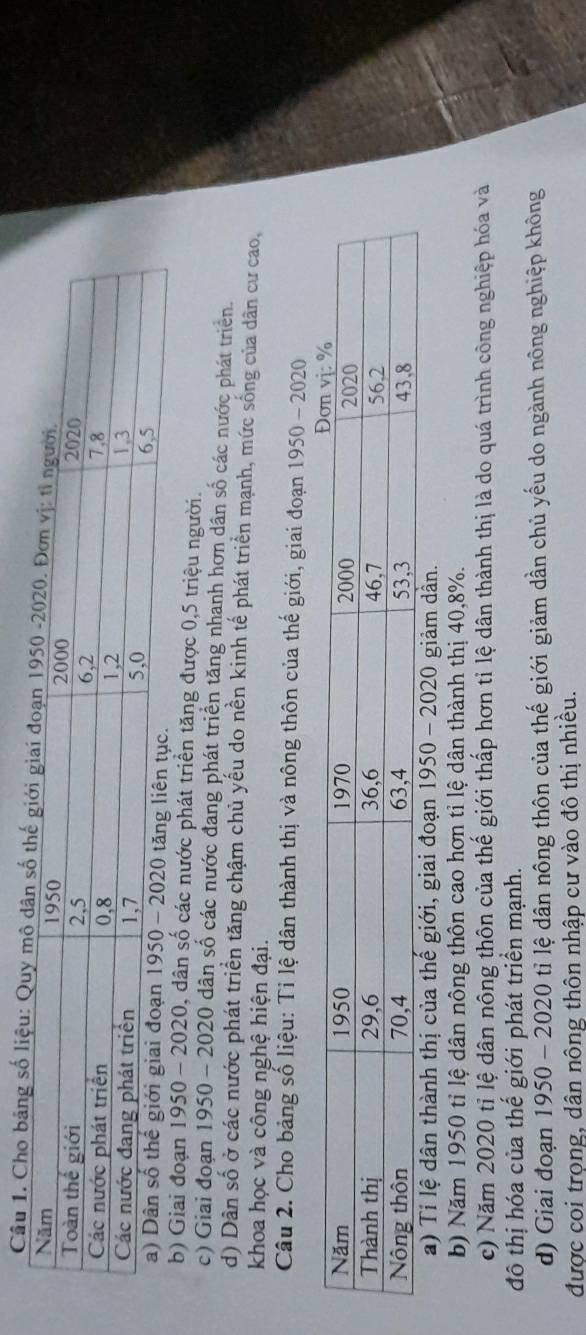 Câu 1. Cho bảng số liệu: Quy mô dân số thế giới giai đoạn 1950 -2020. Đơn vị: tỉ người.
Năm 1950 2000 2020
Toàn thế giới 2,5 6,2 7,8
Các nước phát triển 0,8 1,2 1,3
Các nước đang phát triển 1,7 5,0 6,5
a) Dân số thế giới giai đoạn 1950 – 2020 tăng liên tục.
b) Giai đoạn 1950 – 2020, dân số các nước phát triển tăng được 0,5 triệu người.
c) Giai đoạn 1950 – 2020 dân số các nước đang phát triển tăng nhanh hơn dân số các nước phát triển.
d) Dân số ở các nước phát triển tăng chậm chủ yếu do nền kinh tế phát triển mạnh, mức sống của dân cư cao,
khoa học và công nghệ hiện đại.
Câu 2. Cho bảng số liệu: Tỉ lệ dân thành thị và nông thôn của thế giới, giai đoạn 1950 – 2020
Đơn vị: %
Năm 1950 1970 2000 2020
Thành thị 29,6 36,6 46,7 56,2
Nông thôn 70,4 63,4 53,3 43,8
a) Tỉ lệ dân thành thị của thế giới, giai đoạn 1950 – 2020 giảm dần.
b) Năm 1950 tỉ lệ dân nông thôn cao hơn tỉ lệ dân thành thị 40,8%.
c) Năm 2020 tỉ lệ dân nông thôn của thế giới thấp hơn tỉ lệ dân thành thị là do quá trình công nghiệp hóa và
đô thị hóa của thế giới phát triển mạnh.
d) Giai đoạn 1950 – 2020 tỉ lệ dân nông thôn của thế giới giảm dần chủ yếu do ngành nông nghiệp không
được coi trọng, dân nông thôn nhập cư vào đô thị nhiều.